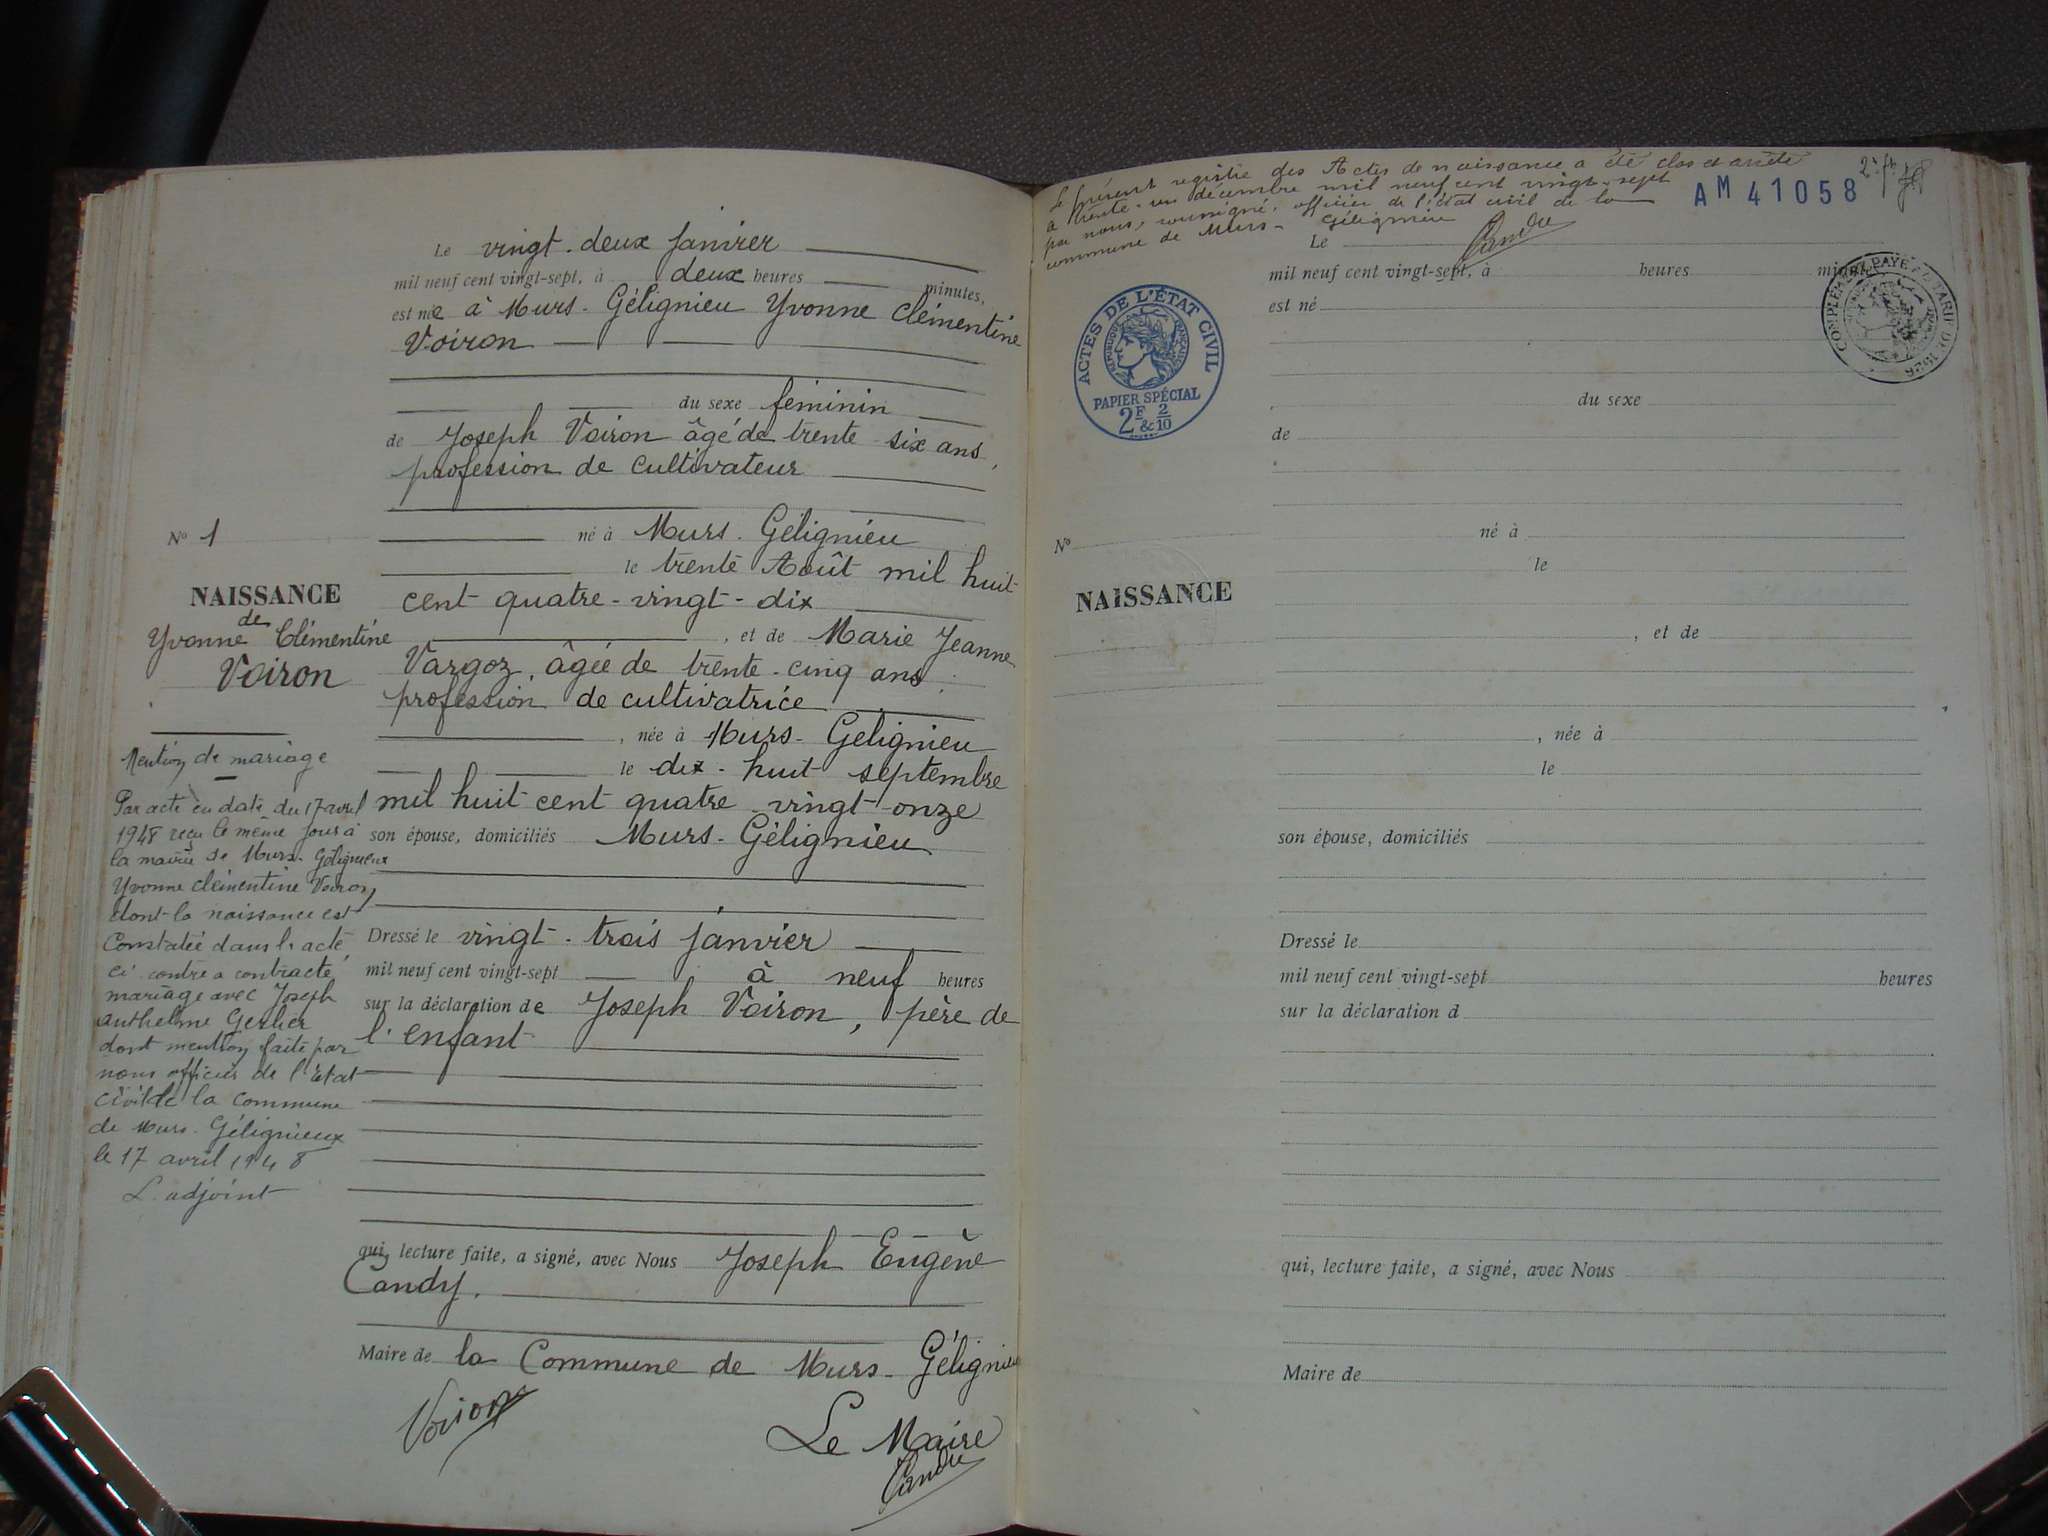 Le vingt-deux janvier
mil neuf cent vingt-sept, à deux heures minutes,
est née à Murs-Gélignieu Yvonne Clémentine
Voiron
du sexe féminin
de Joseph Voiron âgé de trente six ans,
profession de cultivateur
né à Murs-Gélignieu
le trente Août mil huit
cent quatre-vingt-dix
, et de Marie Jeanne
Vargoz, âgée de trente-cinq ans,
profession de cultivatrice
, née à Murs-Gélignieu
le dix-huit septembre
mil huit cent quatre-vingt-onze
son épouse, domiciliés Murs-Gélignieu
Dressé le vingt-trois janvier
mil neuf cent vingt-sept à neuf heures
sur la déclaration de Joseph Voiron, père de
l'enfant
qui, lecture faite, a signé, avec Nous Joseph Eugène
Candy.
Maire de la Commune de Murs-Gélignieu
Voiron
Le Maire
Nº 1
NAISSANCE
de
Yvonne Clémentine
Voiron
Mention de mariage
Par acte en date du 17 avril
1948 reçu le même jour à
la mairie de Murs-Gélignieux
Yvonne Clémentine Voiron
dont la naissance est
Constatée dans l'acte
ci-contre a contracté
mariage avec Joseph
Anthelme Gerlier
dont mention faite par
nous officier de l'état
civil de la commune
de Murs-Gélignieux
le 17 avril 1948
L'adjoint
Le présent registre des Actes de naissance a été clos et arrêté
à trente-un décembre mil neuf cent vingt-sept
par nous, soussigné, officier de l'état civil de la
commune de Murs-Gélignieu
AM 41058
Le
mil neuf cent vingt-sept, à heures minutes
est né
ACTES DE L'ÉTAT CIVIL
RÉPUBLIQUE FRANÇAISE
PAPIER SPÉCIAL
2F 2/10
&
COMPLÉMENT PAYÉ AU TARIF DE
du sexe
de
né à
le
Nº
NAISSANCE
, et de
, née à
le
son épouse, domiciliés
Dressé le
mil neuf cent vingt-sept heures
sur la déclaration d
qui, lecture faite, a signé, avec Nous
Maire de